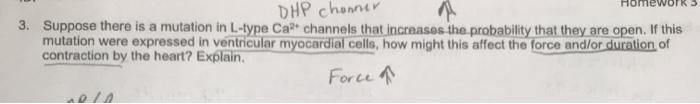 Homework 3
DHP channer ↑
3. Suppose there is a mutation in L-type Ca²⁺ channels that increases the probability that they are open. If this
mutation were expressed in ventricular myocardial cells, how might this affect the force and/or duration of
contraction by the heart? Explain.
Force ↑